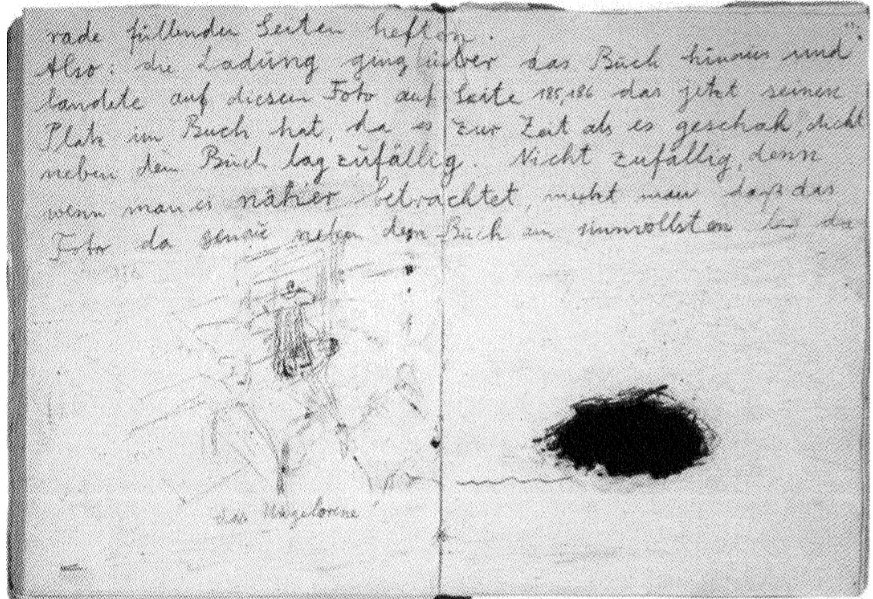 rade füllenden Seiten heften.
Also: die Ladung ging über das Buch hinaus und
landete auf diesem Foto auf Seite 185,186 das jetzt seinen
Platz im Buch hat, da es zur Zeit als es geschah, dicht
neben dem Buch lag zufällig. Nicht zufällig, denn
wenn man es näher betrachtet, merkt man daß das
Foto da genau neben dem Buch am sinnvollsten
das Ungeborene